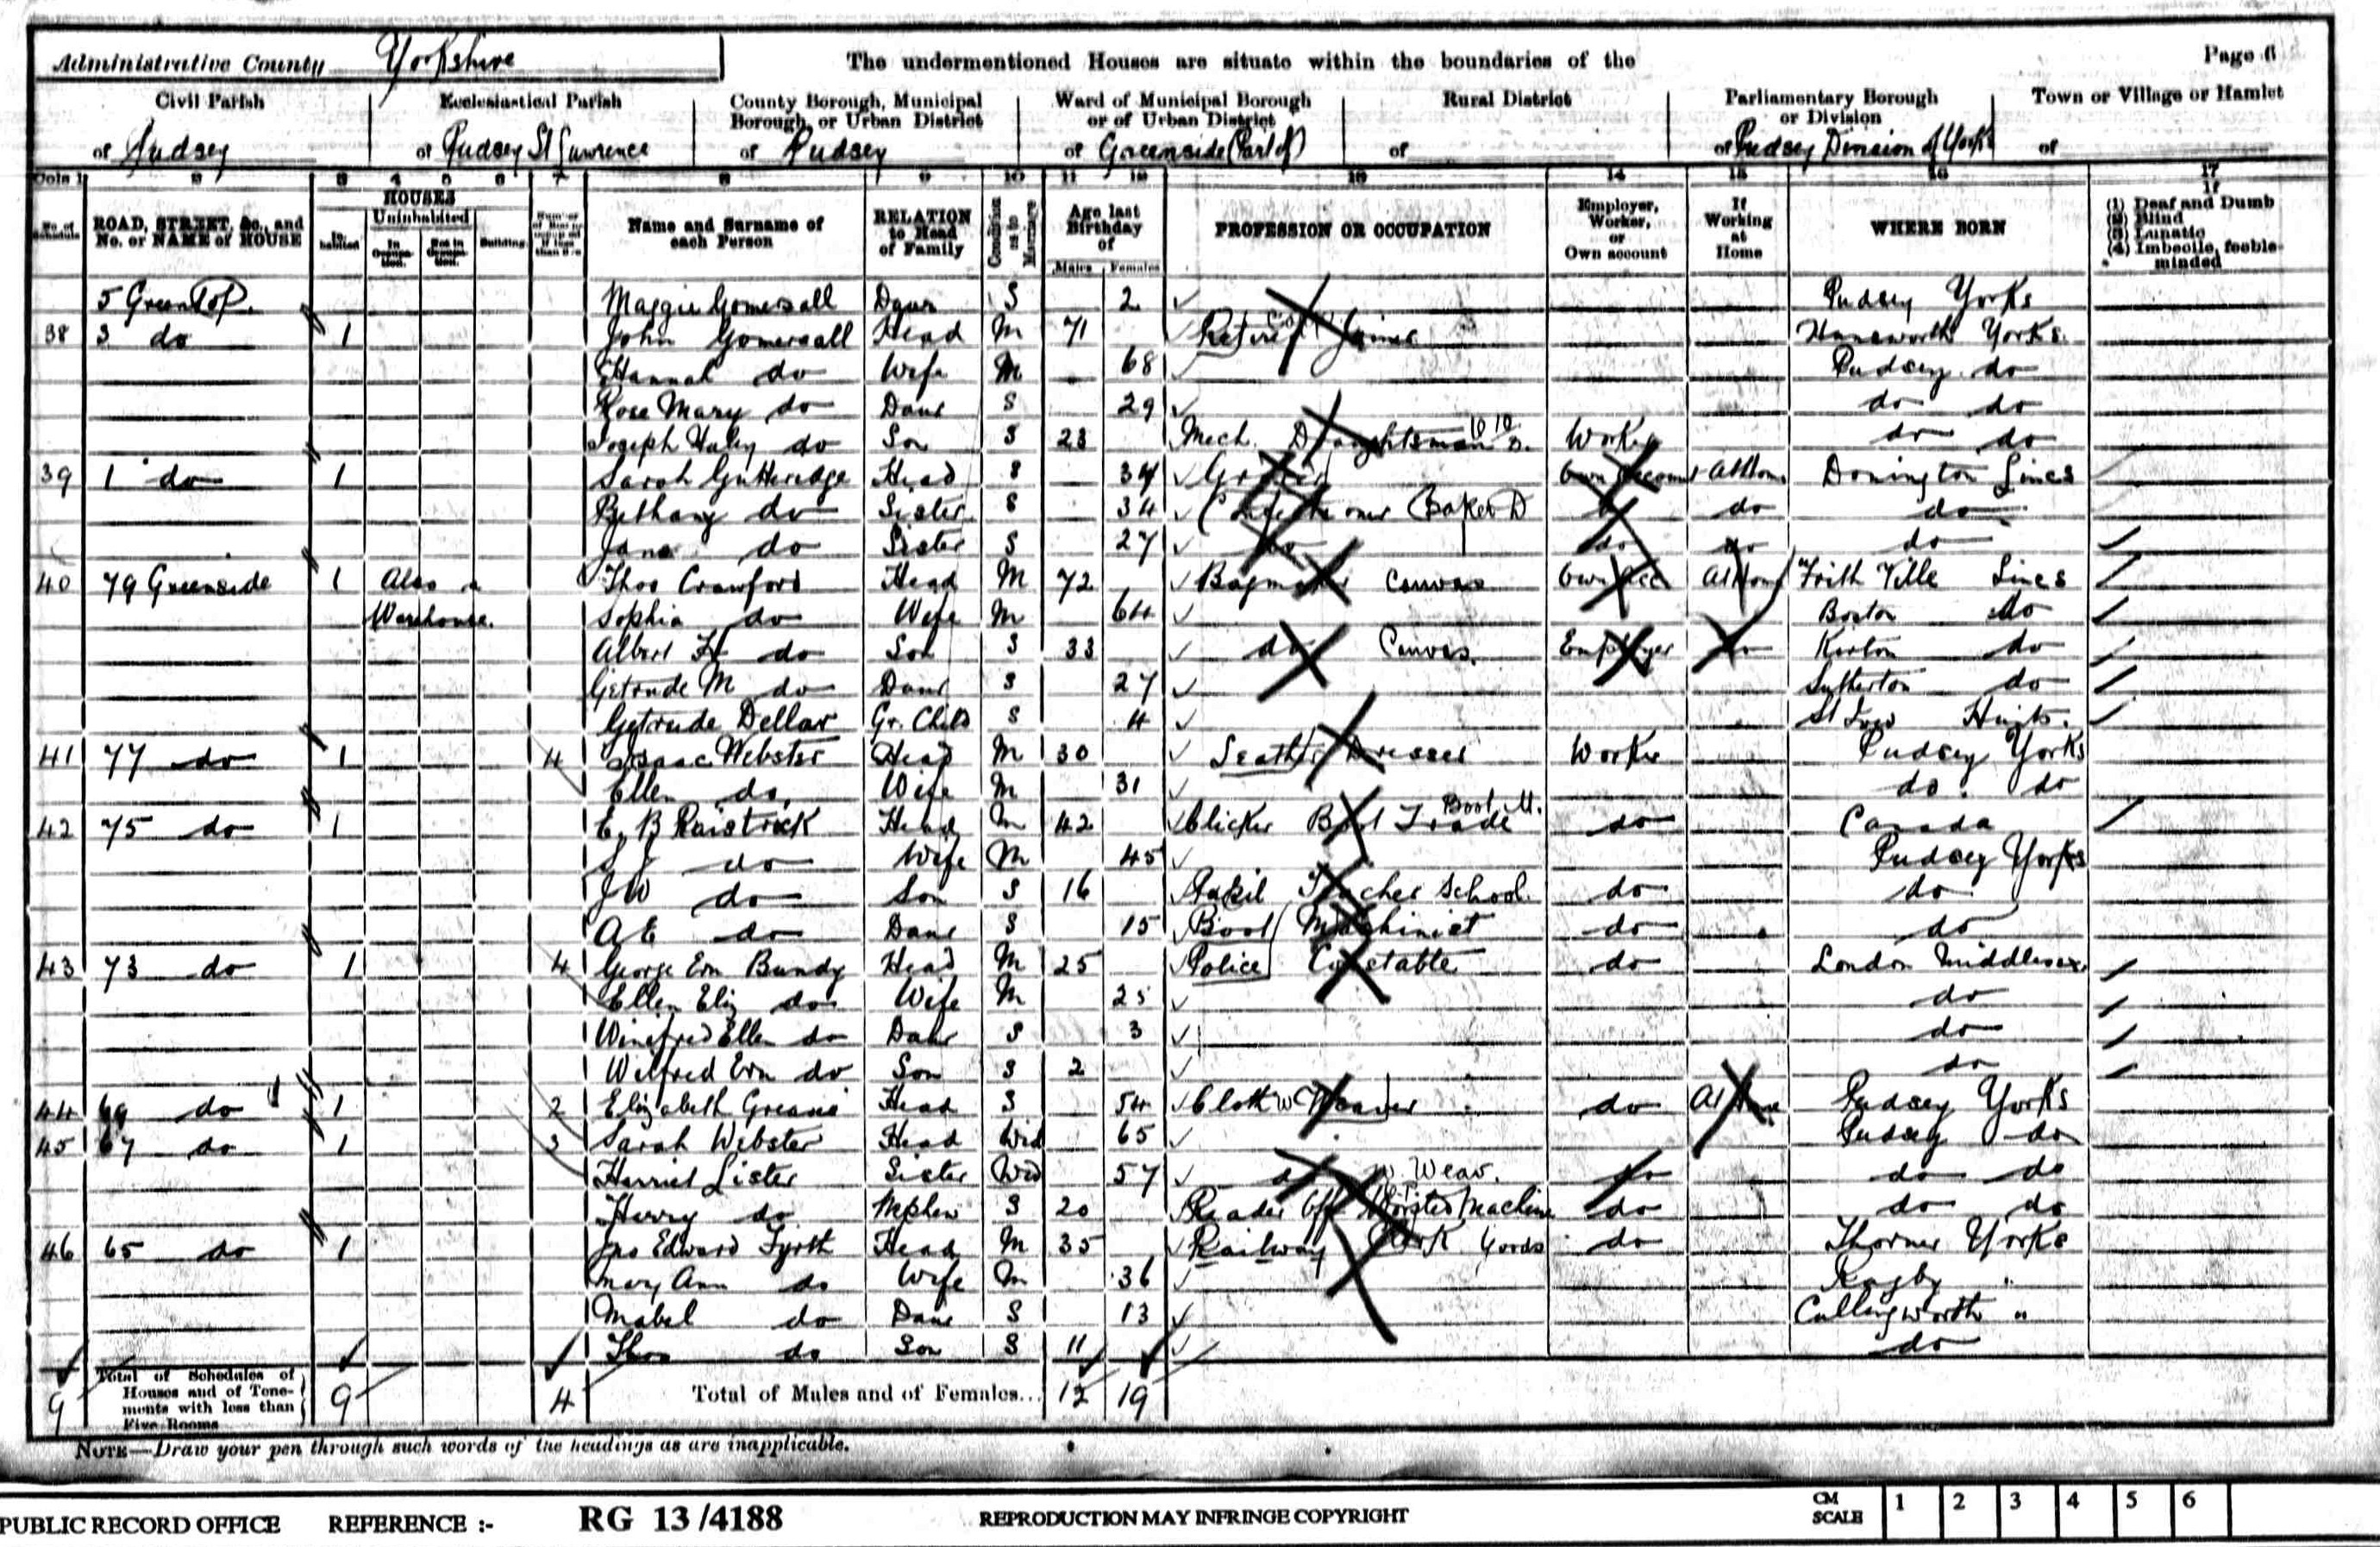 Administrative County Yorkshire The undermentioned Houses are situate within the boundaries of the Page 6
Civil Parish Ecclesiastical Parish County Borough, Municipal Borough, or Urban District Ward of Municipal Borough or of Urban District Rural District Parliamentary Borough or Division Town or Village or Hamlet
of Pudsey of Pudsey St Lawrence of Pudsey of Greenside (Part of) of of Pudsey Division of Yorks of
Cols 1 2 3 4 5 6 7 8 9 10 11 12 13 14 15 16 17
No. of Schedule ROAD, STREET, &c., and No. or NAME of HOUSE HOUSES Inhabited Uninhabited In Occupation Not in Occupation Building Name and Surname of each Person RELATION to Head of Family Condition as to Marriage Age last Birthday of Males Females PROFESSION OR OCCUPATION Employer, Worker, or Own account If Working at Home WHERE BORN If (1) Deaf and Dumb (2) Blind (3) Lunatic (4) Imbecile, feeble-minded
5 Green Top. Maggie Gomersall Daur S 2 Pudsey Yorks
38 3 do 1 John Gomersall Head M 71 Retired Yorks.
Hannah do Wife M 68 Pudsey do
Rose Mary do Daur S 29 do do
Joseph Haley do Son S 23 Mech. Draughtsman Worker do do
39 1 do 1 Sarah Gutheridge Head S 39 Grocer Own Account At Home Donington Lincs
Bethany do Sister S 34 Confectioner Baker D do do do
Jane do Sister S 27 do do do do
40 79 Greenside 1 Also a Thos Crawford Head M 72 Bagmaker Canvas Own Acc At Home Frith Ville Lincs
Warehouse. Sophia do Wife M 64 Boston do
Albert H do Son S 33 do Canvas. Employer do Kirton do
Getrude M do Daur S 27 Sutterton do
Getrude Dellar Gr. Child S 4 St Ives Hunts.
41 77 do 1 4 Isaac Webster Head M 30 Leather Dresser Worker Pudsey Yorks
Ellen do. Wife M 31 do. do
42 75 do 1 E. B Raistrick Head M 42 Clicker Boot Trade Boot M. do Canada
do Wife M 45 Pudsey Yorks
J W do Son S 16 Pupil Teacher School. do do
A E do Daur S 15 Boot Machinist do do
43 73 do 1 4 George Ern Bundy Head M 25 Police Constable do London Middlesex.
Ellen Eliz do Wife M 25 do
Winifred Ellen do Daur S 3 do
Wilfred Ern do Son S 2 do
44 69 do 1 2 Elizabeth Head S 54 Cloth W Weaver do At Home Pudsey Yorks
45 67 do 1 3 Sarah Webster Head Wid 65 Pudsey do
Harriet Lister Sister Wid 57 do W. Weav. do do do
Harry do Nephew S 20 Reader off Worsted Machine do do do
46 65 do 1 Jno Edward Fyrth Head M 35 Railway Clerk Goods do Thorner Yorks
Mary Ann do Wife M 36 "
Mabel do Daur S 13 Cullingworth "
Thos do Son S 11 do
9 Total of Schedules of Houses and of Tenements with less than Five Rooms 9 4 Total of Males and of Females... 12 19
NOTE—Draw your pen through such words of the headings as are inapplicable.
PUBLIC RECORD OFFICE REFERENCE :- RG 13/4188 REPRODUCTION MAY INFRINGE COPYRIGHT CM SCALE 1 2 3 4 5 6